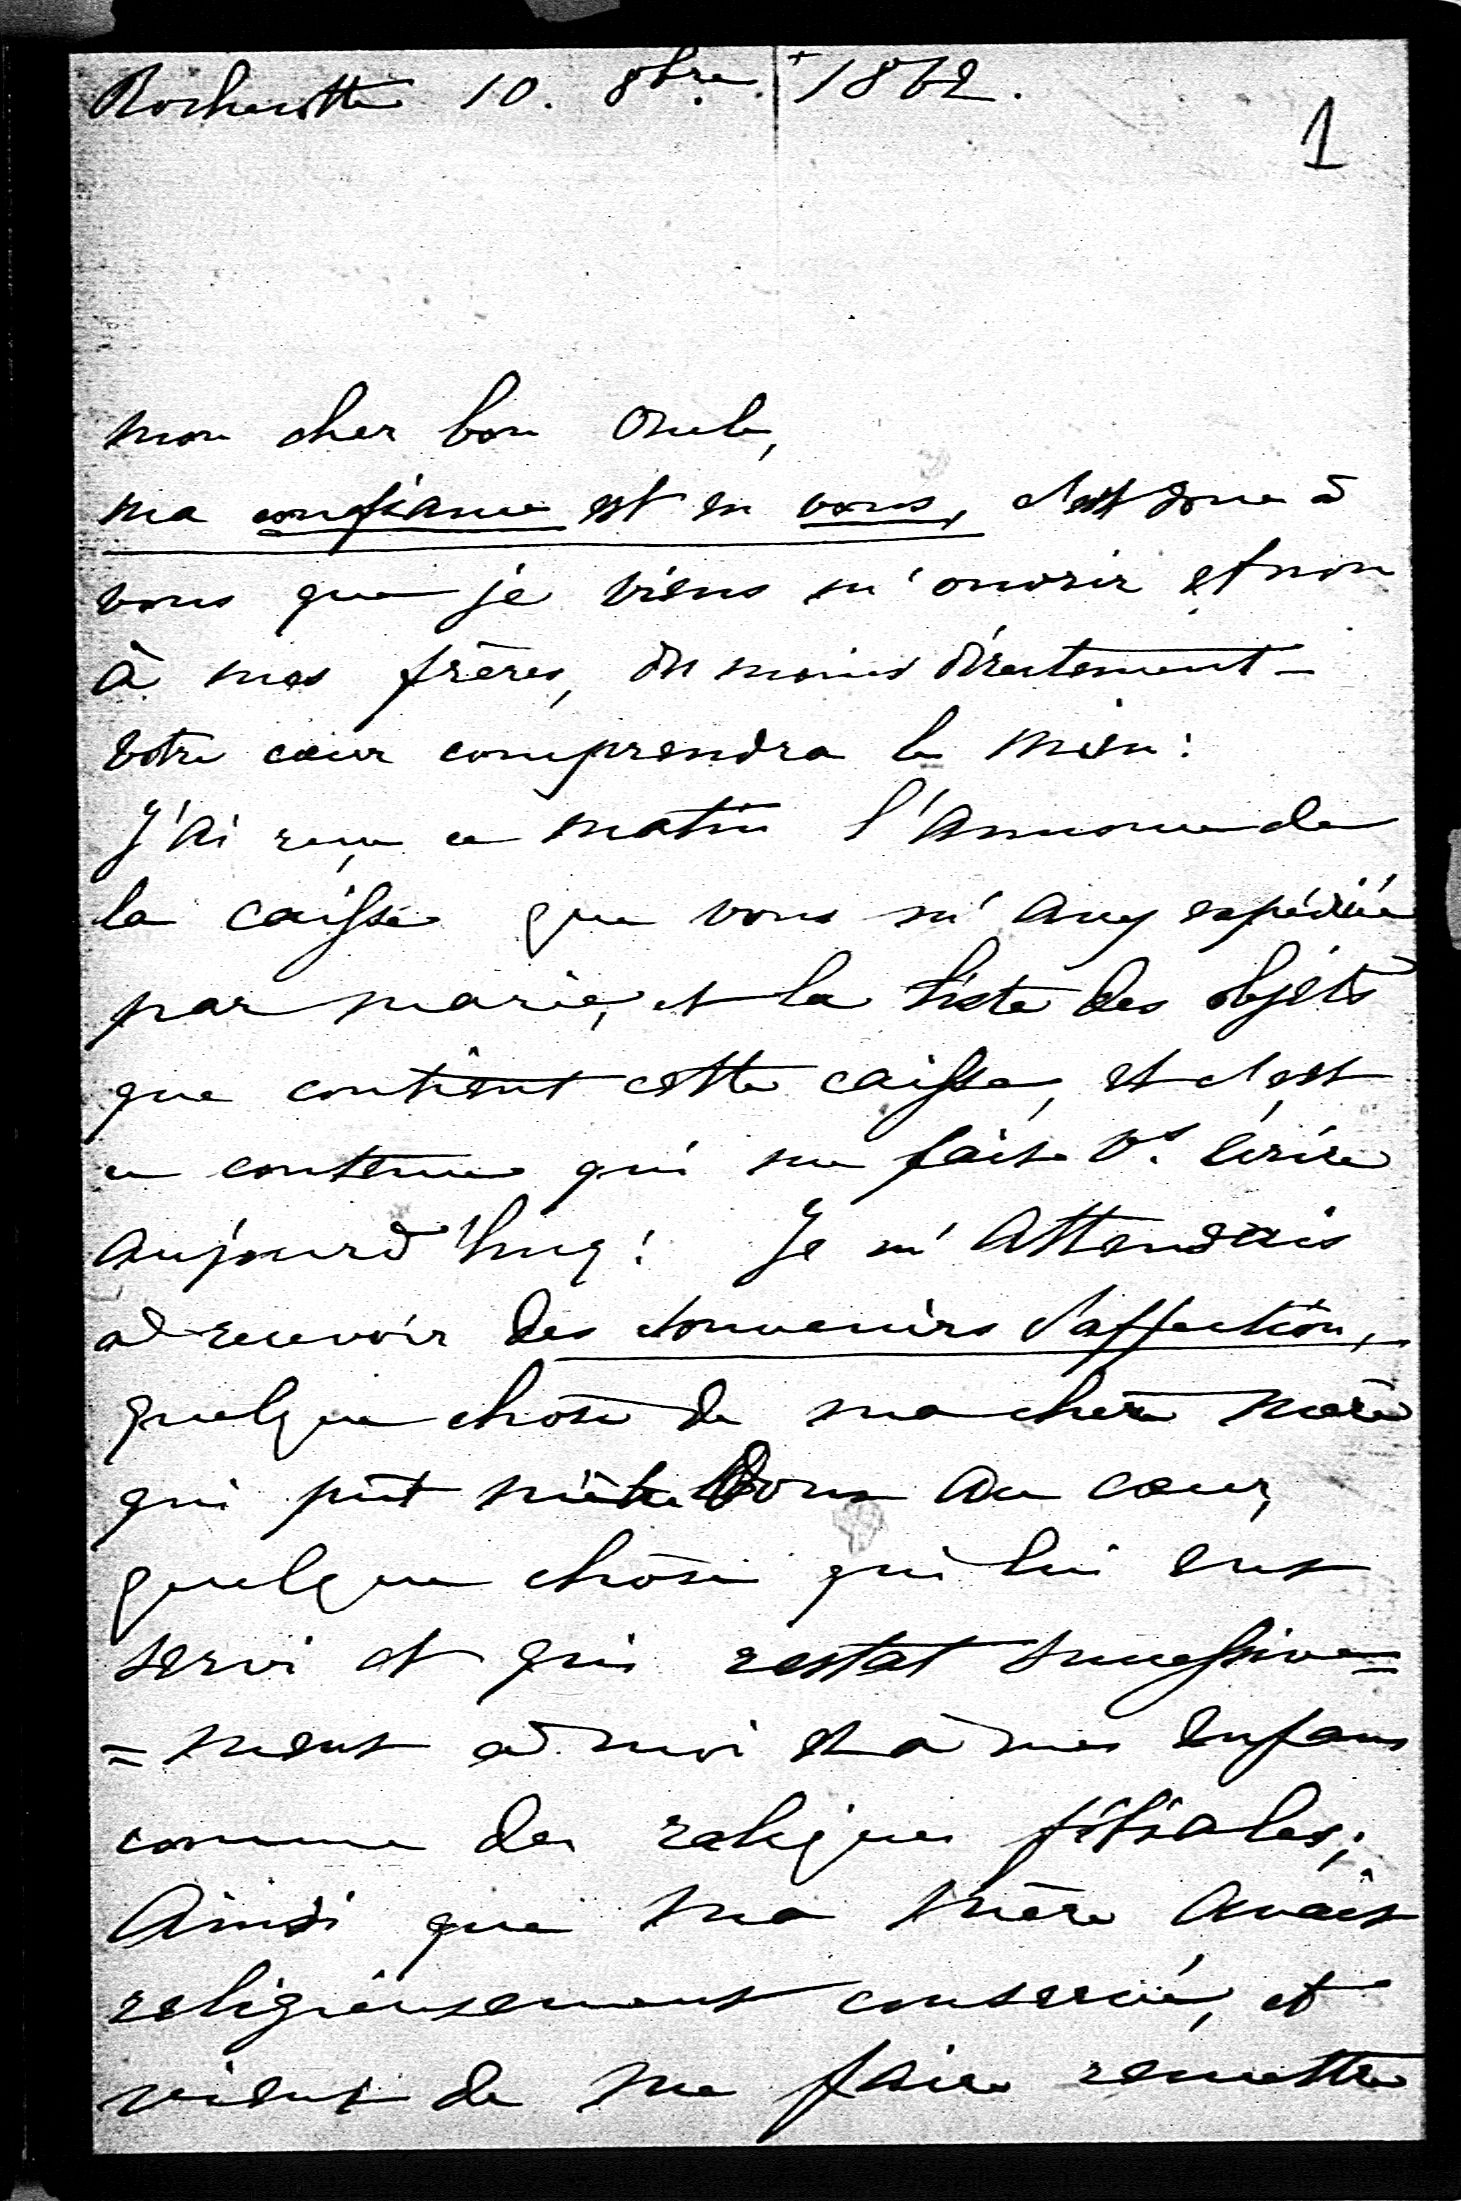 Rochecotte 10. 8bre. 1862.
1
mon cher bon Oncle,
ma confiance est en vous, c'est donc à
vous que je viens m'ouvrir et non
à mes frères, du moins directement –
votre cœur comprendra le mien :
J'ai reçu ce matin l'annonce de
la caisse que vous m'avez expédiée
par marie, et la liste des objets
que contient cette caisse, et c'est
ce contenu qui me fait vs. écrire
aujourd'huy ! Je m'attendais
à recevoir des souvenirs d'affection,
quelque chose de ma chère mère
qui pût m'être doux au cœur,
quelque chose qui lui eut
servi et qui restat successive=
=ment à moi et à mes enfans
comme des reliques filiales ;
Ainsi que ma mère avait
religieusement conservé, et
vient de me faire remettre